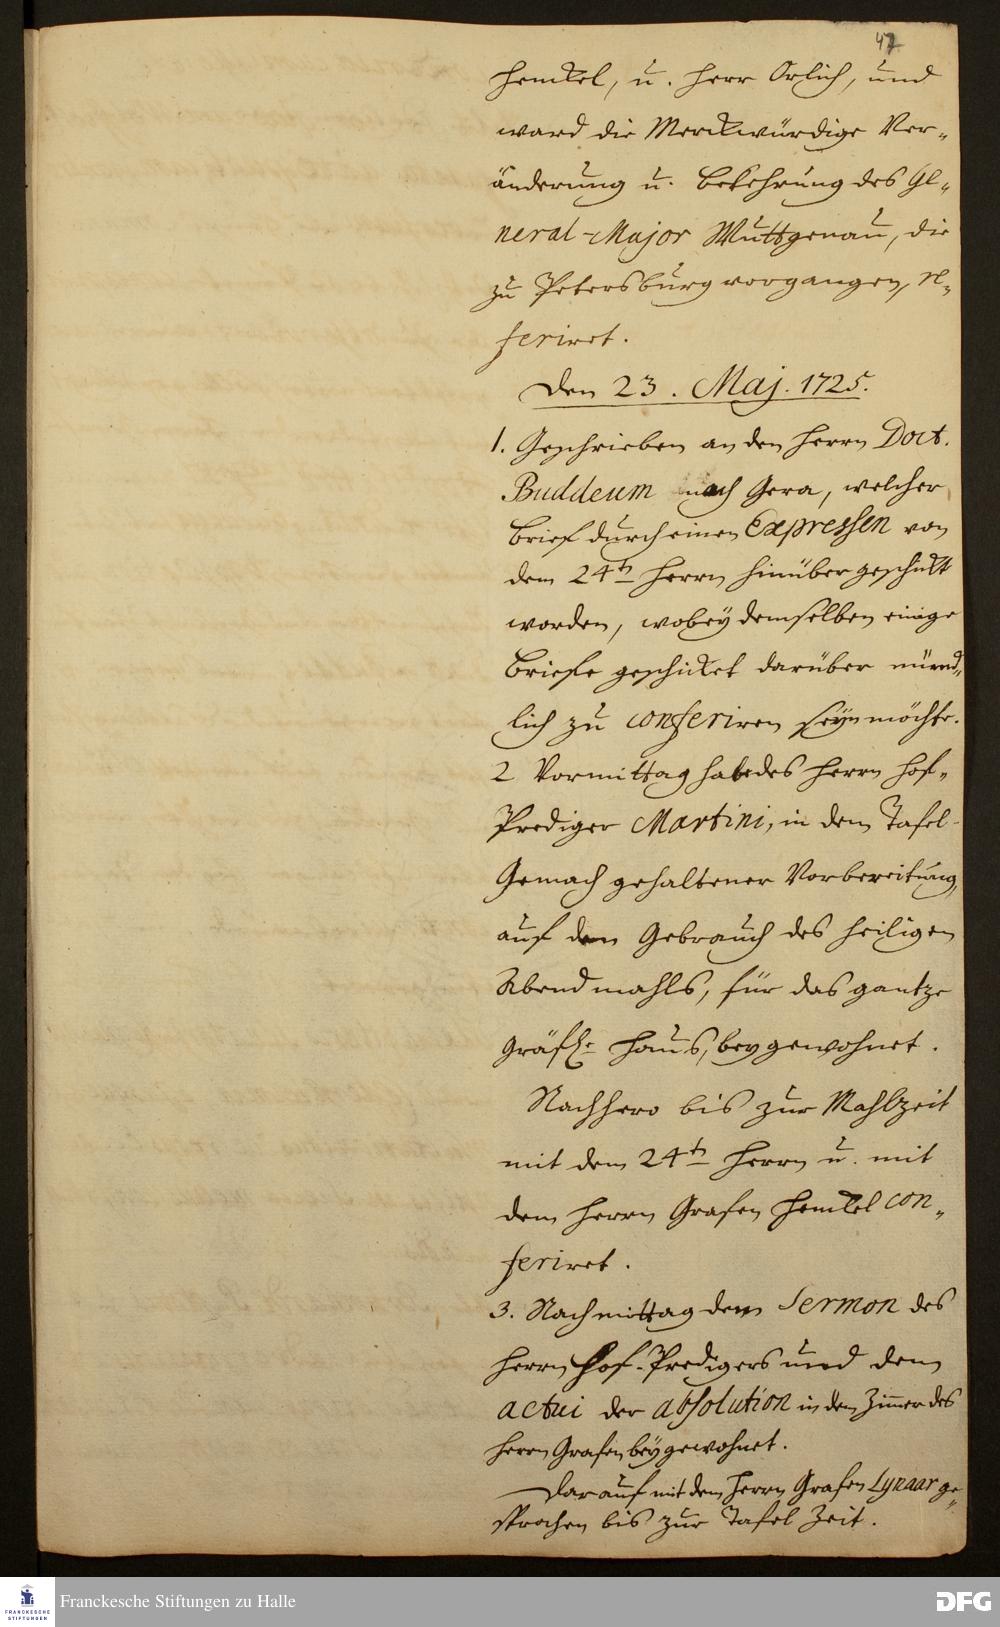 47
Henckel, u. Herr Orlich, und
ward die Merckwürdige Ver-
änderung u. Bekehrung des Ge-
neral-Major Wuttgenau, die
zu Petersburg vorgangen, re-
feriret.
Den 23. Maj. 1725.
1. Geschrieben an den Herrn Doct.
Buddeum nach Gera, welcher
Brief durch einen Expressen von
dem 24tn Herrn hinüber geschickt
worden, wobey demselben einige
Briefe geschicket darüber münd-
lich zu conferiren seyn möchte.
2 Vormittag habe des Herrn Hof-
Prediger Martini, in dem Tafel-
Gemach gehaltener Vorbereitung,
auf den Gebrauch des heiligen
Abendmahls, für das gantze
Gräfl. Haus, beygewohnet.
Nachhero bis zur Mahlzeit
mit dem 24tn Herrn u. mit
dem Herrn Grafen Henckel con-
feriret.
3. Nachmittag dem Sermon des
Herrn Hof-Predigers und dem
actui der absolution in dem Zimmer des
Herrn Grafen beygewohnet.
Darauf mit dem Herrn Grafen Lynaar ge-
sprochen bis zur Tafel Zeit.
FRANCKESCHE STIFTUNGEN
Franckesche Stiftungen zu Halle
DFG